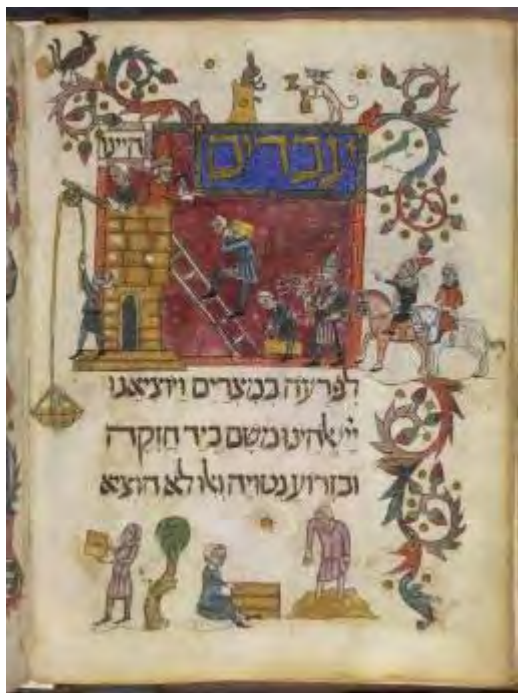 עבדים היינו
לפרעה במצרים ויוציאנו
יי אלהינו משם ביד חזקה
ובזרוע נטויה ואלו לא הוציא